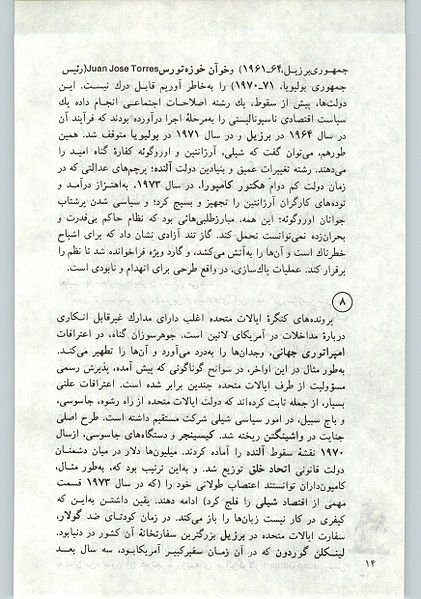 جمهوری برزیل، ۶۴-۱۹۶۱) و خوآن خوزه تورس Juan Jose Torres (رئیس
جمهوری بولیویا، ۷۱-۱۹۷۰) را به‌خاطر آوریم قابل درك نیست. این
دولت‌ها، پیش از سقوط، یك رشته اصلاحات اجتماعی انجام داده یك
سیاست اقتصادی ناسیونالیستی را به‌مرحلهٔ اجرا درآورده بودند که فرآیند آن
در سال ۱۹۶۴ در برزیل و در سال ۱۹۷۱ در بولیویا متوقف شد. همین
طورهم، می‌توان گفت که شیلی، آرژانتین و اوروگوئه کفارهٔ گناه امید را
می‌دهند. رشته تغییرات عمیق و بنیادین دولت آلنده؛ پرچم‌های عدالتی که در
زمان دولت کم دوام هکتور کامپورا، در سال ۱۹۷۳، به‌اهتزاز درآمد و
توده‌های کارگران آرژانتین را تجهیز و بسیج کرد؛ و سیاسی شدن پرشتاب
جوانان اوروگوئه؛ این همه، مبارزطلبی‌هائی بود که نظام حاکم بی‌قدرت و
بحران‌زده نمی‌توانست تحمل کند. گاز تند آزادی نشان داد که برای اشباح
خطرناك است و آن‌ها را به‌آتش می‌کشد، و گارد ویژه فراخوانده شد تا نظم را
برقرار کند. عملیات پاك‌سازی، در واقع طرحی برای انهدام و نابودی است.
۸
پرونده‌های کنگرهٔ ایالات متحده اغلب دارای مدارك غیرقابل انکاری
دربارهٔ مداخلات در آمریکای لاتین است. جوهرسوزان گناه، در اعترافات
امپراتوری جهانی، وجدان‌ها را به‌درد می‌آورد و آن‌ها را تطهیر می‌کند.
به‌طور مثال در این اواخر، در سوانح گوناگونی که پیش آمده، پذیرش رسمی
مسؤولیت از طرف ایالات متحده چندین برابر شده است. اعترافات علنی
بسیار، از جمله ثابت کرده‌اند که دولت ایالات متحده از راه رشوه، جاسوسی،
و باج سبیل، در امور سیاسی شیلی شرکت مستقیم داشته است. طرح اصلی
جنایت در واشینگتن ریخته شد. کیسینجر و دستگاه‌های جاسوسی، ازسال
۱۹۷۰ نقشهٔ سقوط آلنده را آماده کردند. میلیون‌ها دلار در میان دشمنان
دولت قانونی اتحاد خلق توزیع شد. و به‌این ترتیب بود که، به‌طور مثال،
کامیون‌داران توانستند اعتصاب طولانی خود را (که در سال ۱۹۷۳ قسمت
مهمی از اقتصاد شیلی را فلج کرد) ادامه دهند. یقین داشتن به‌این که
کیفری در کار نیست زبان‌ها را باز می‌کند. در زمان کودتای ضد گولار،
سفارت ایالات متحده در برزیل بزرگترین سفارتخانهٔ آن کشور در دنیابود.
لینکلن گوردون که در آن زمان سفیرکبیر آمریکابود، سه سال بعد
۱۴